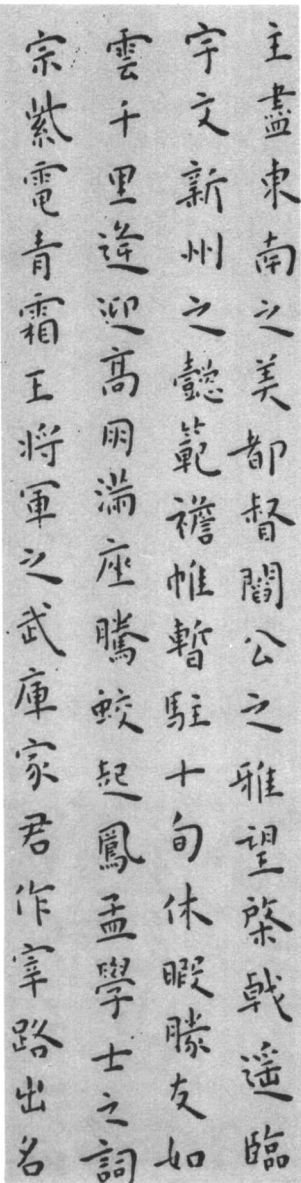 主盡東南之美都督閻公之雅望棨戟遥臨
宇文新州之懿範襜帷暫駐十旬休暇勝友如
雲千里逢迎高朋滿座騰蛟起鳳孟學士之詞
宗紫電青霜王將軍之武庫家君作宰路出名